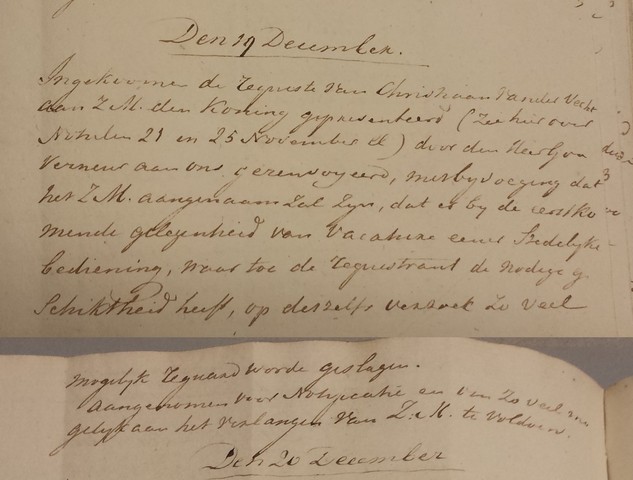 Den 19 December.
Ingekoomen de Requeste van Christiaan Vander Vecht
aan Z.M. den Koning gepresenteerd (Zie hier over
Notulen 21 en 25 November ) door den Heer Gou
verneur aan ons gerenvoyeerd, met byvoeging dat
het Z.M. aangenaam Zal Zyn, dat er by de eerstko
mende gelegenheid van Vacature eener Stedelyke
bediening, waar toe de Requestrant de nodige g
Schiktheid heeft, op deszelfs verzoek Zo veel
mogelyk reguard worde geslagen.
aangenomen voor Notificatie en om Zo veel mo
gelyk aan het verlangen van Z.M. te voldoen.
Den 20 December